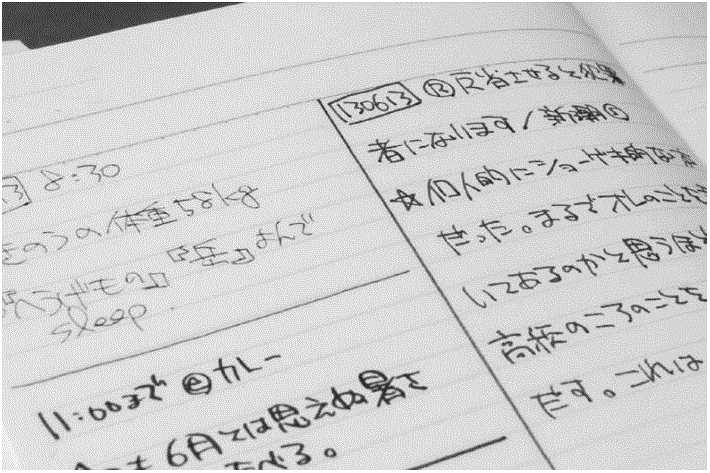 8:30
きのうの体重58kg
『岳』よんで
sleep
11:00まで ⓔカレー
6月とは思えぬ暑さ
たべる。
130613 Ⓑ反省させると犯罪
者になります/新潮Ⓢ
☆個人的にショーゲキ的な
だった。まるでオレのことを
いてあるのかと思うほど
高校のころのことを
だす。これは